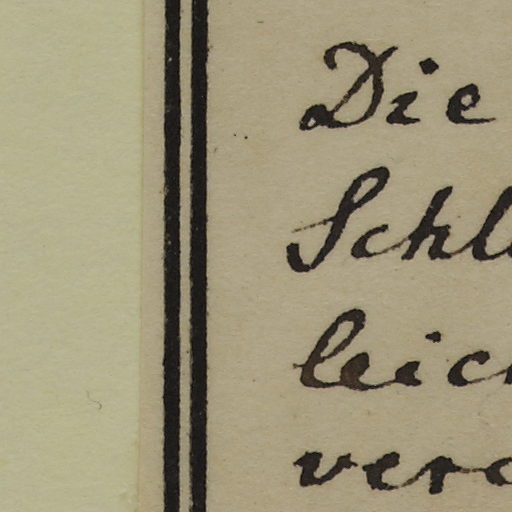 Die
Schl
leic
ver